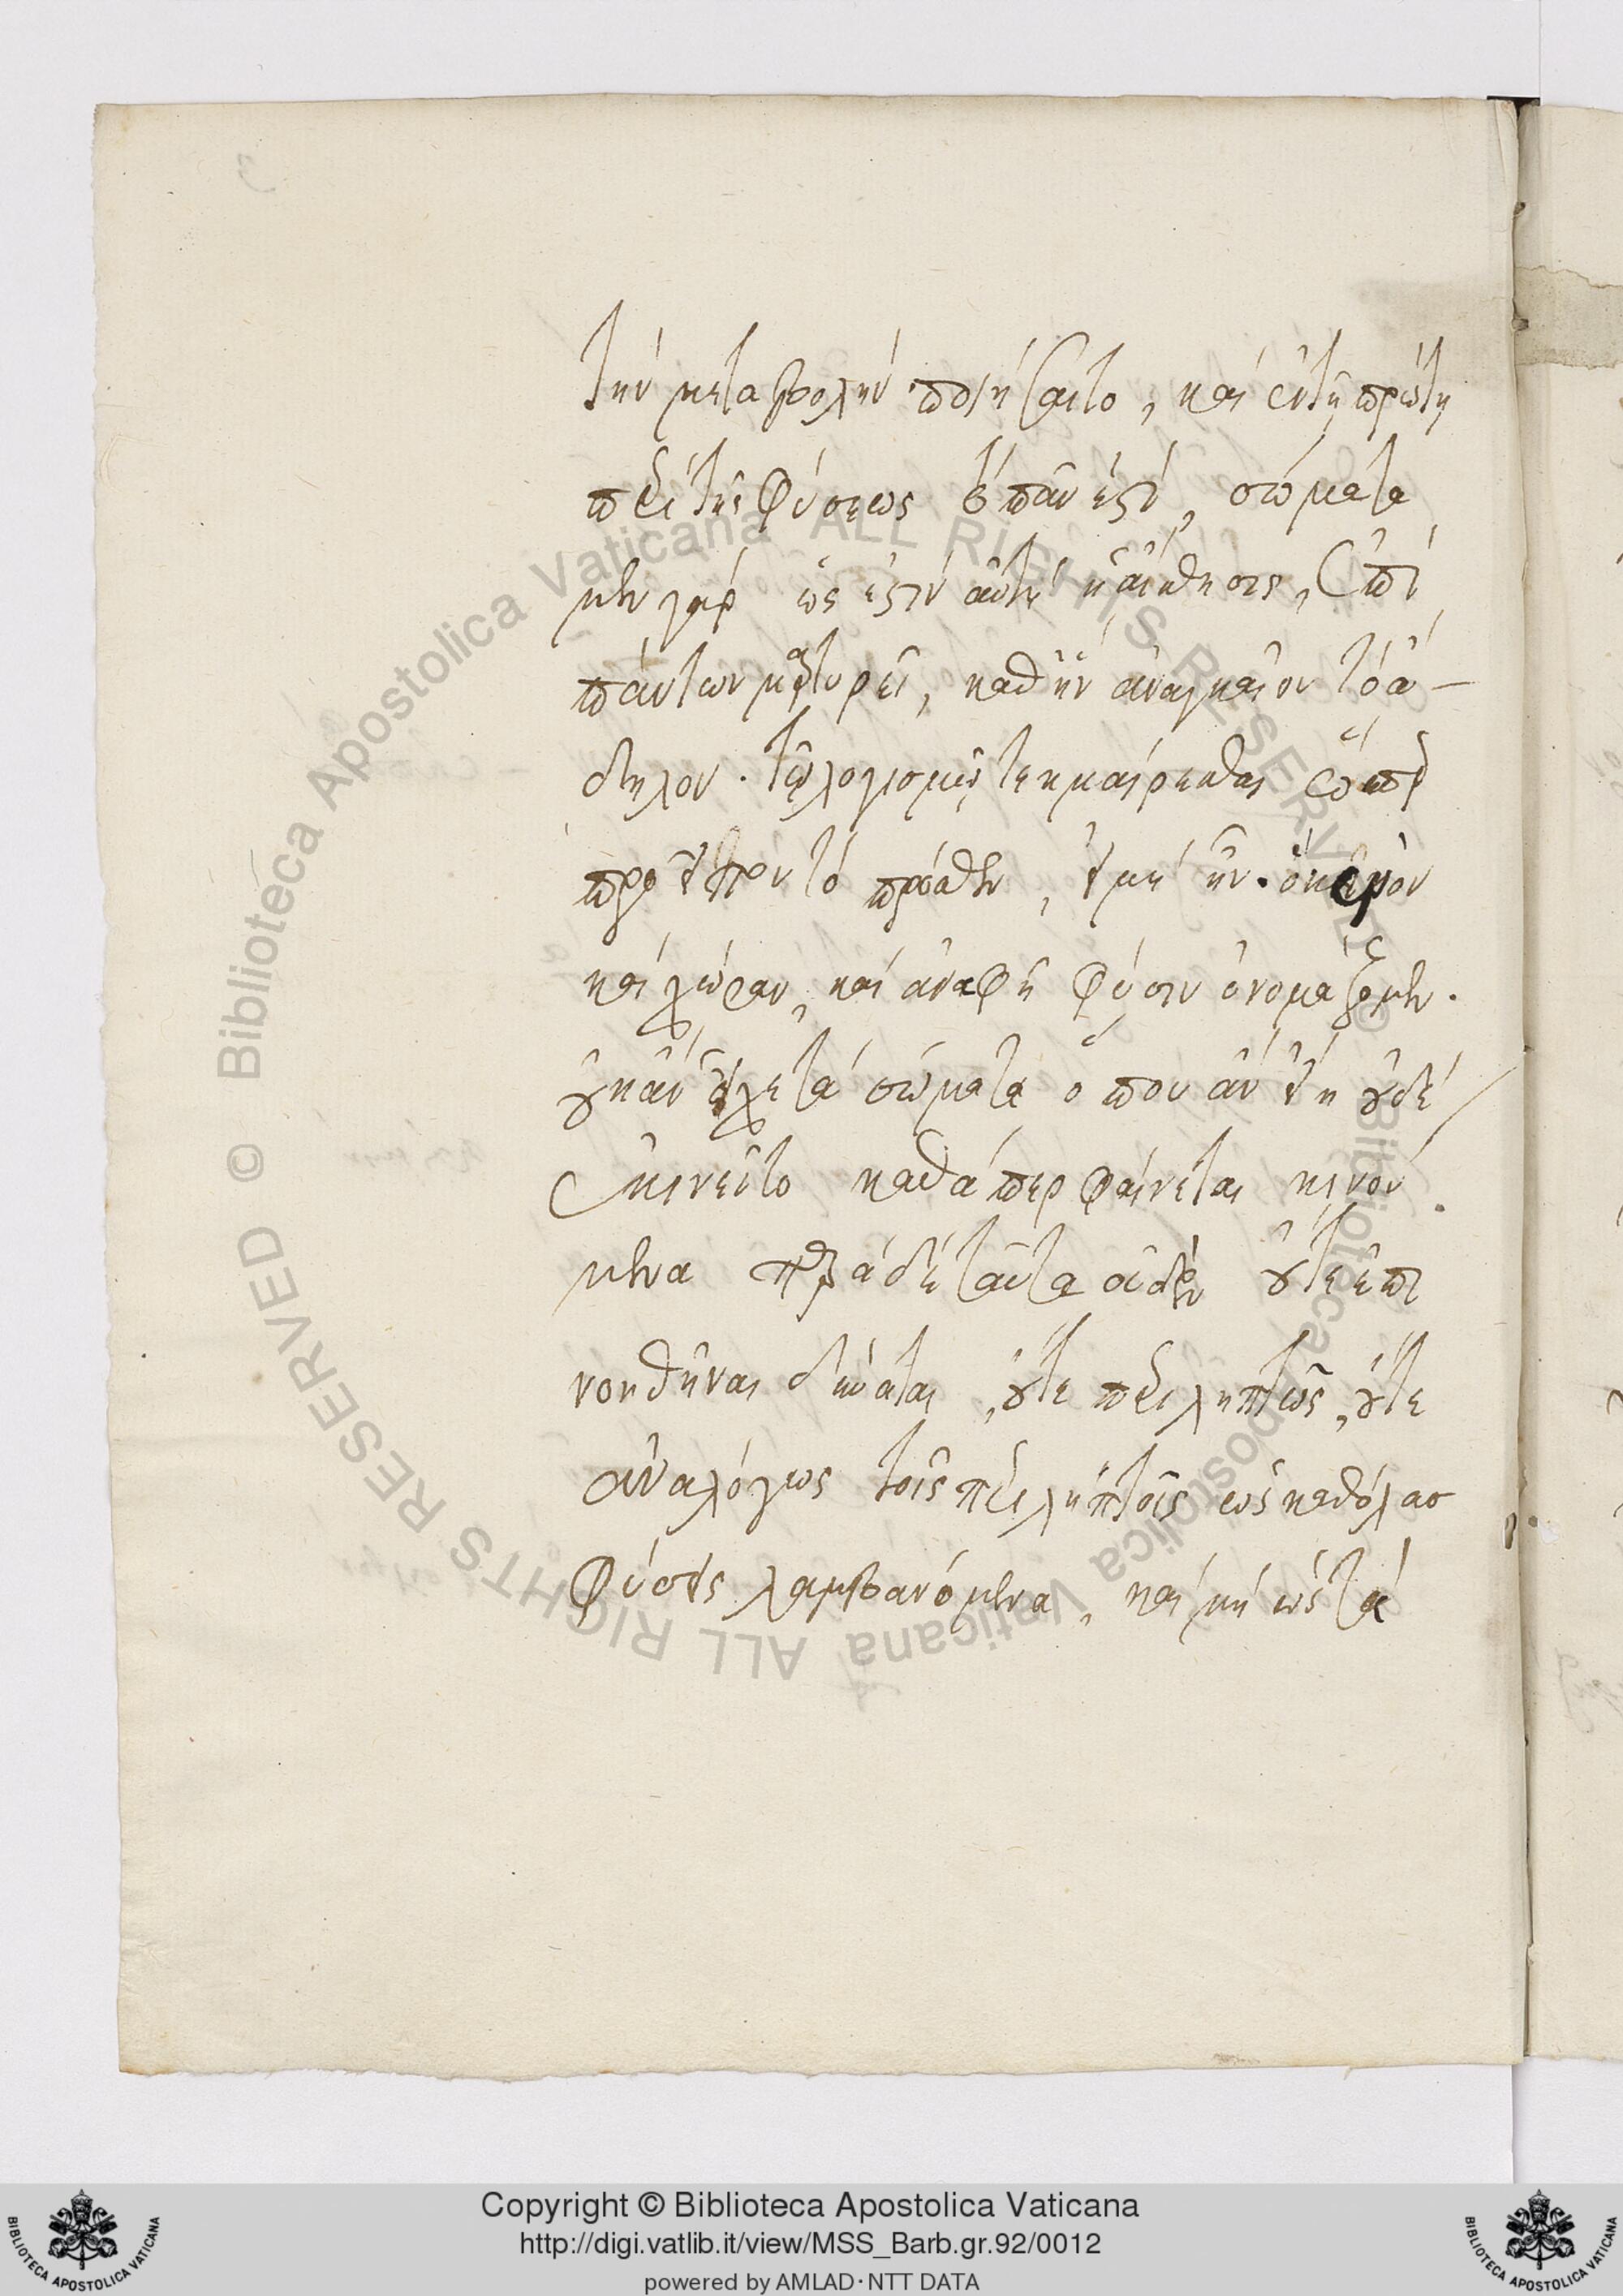 τὴν μεταβολὴν ποιήσαιτο, καὶ ἐν τῇ πρώτῃ
περὶ τῆς φύσεως τὸ πᾶν ἐστί, σώματα
μὲν γὰρ ὡς ἐστὶν αὐτὴ ἡ αἴσθησις, ἐπὶ
πάντων μαρτυρεῖ, καθ' ἣν ἀναγκαῖον τὸ ἄ-
δηλον. τῷ λογισμῷ τεκμαίρεσθαι ὥσπερ
προεῖπον τὸ πρόσθεν, εἰ μὴ ἦν. ὃ κενὸν
καὶ χώραν, καὶ ἀναφῆ φύσιν ὀνομάζομεν.
οὐκ ἂν εἶχε τὰ σώματα ὅπου ἂν εἴη οὐδὲ
ἐκινεῖτο καθάπερ φαίνεται κινού
μενα παρὰ δὲ ταῦτα οὐδὲν οὔτε ἐπι
νοηθῆναι δύναται, οὔτε περιληπτῶς, οὔτε
ἀναλόγως τοῖς περιληπτοῖς ὡς καθόλασ
φύσεις λαμβανόμενα, καὶ μὴ ὡς τὰ
© Biblioteca Apostolica Vaticana ALL RIGHTS RESERVED © Biblioteca Apostolica Vaticana ALL RIGHTS RESERVED
Copyright © Biblioteca Apostolica Vaticana
http://digi.vatlib.it/view/MSS_Barb.gr.92/0012
powered by AMLAD·NTT DATA
BIBLIOTECA APOSTOLICA VATICANA
BIBLIOTECA APOSTOLICA VATICANA